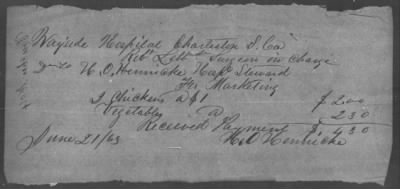 Wayside Hospital Charleston S. Ca
Robt Lebby Surgeon in Charge
To H. O. Hennicke Hosp Steward
For Marketing
2 Chickens a $1 $2 00
Vegetables a 2 30
Received Payment $4.30
June 21/63 H. O. Hennicke